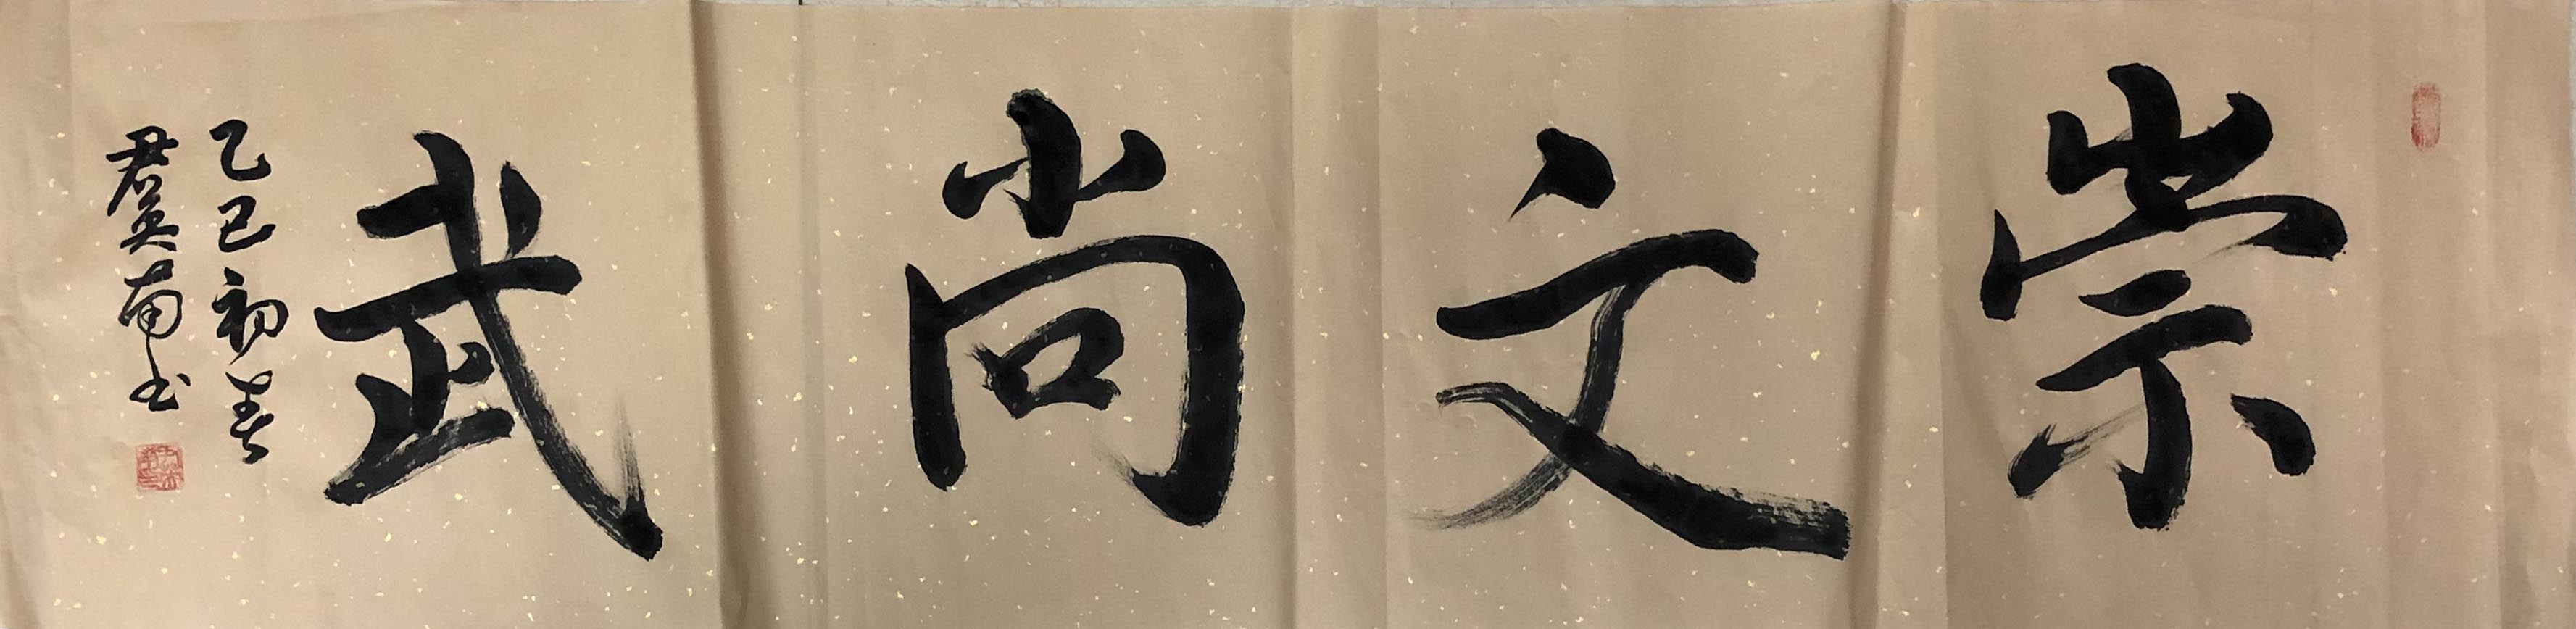 崇文尚武
乙巳初春
君英南书